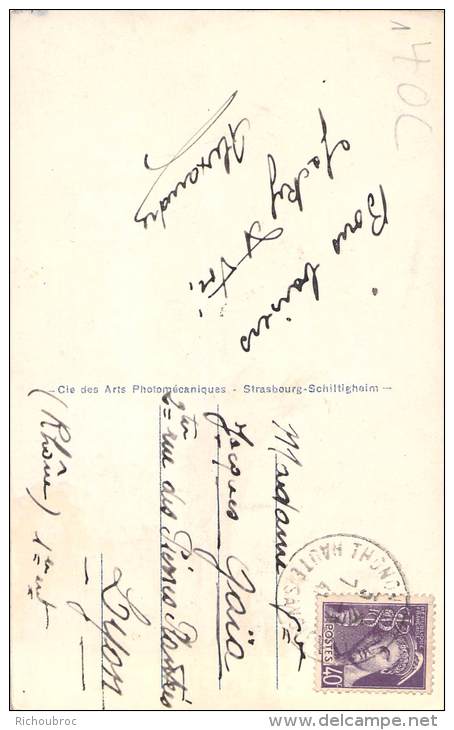 140C
Bons baisers
Jacky et
Alexandre
— Cie des Arts Photomécaniques - Strasbourg-Schiltigheim —
Madame
Jacques Gaïa
rue des Pierres Plantées
Lyon
(Rhône) 1er art
HAUTE-SA
POSTES
40
© Richoubroc
www.delcampe.net